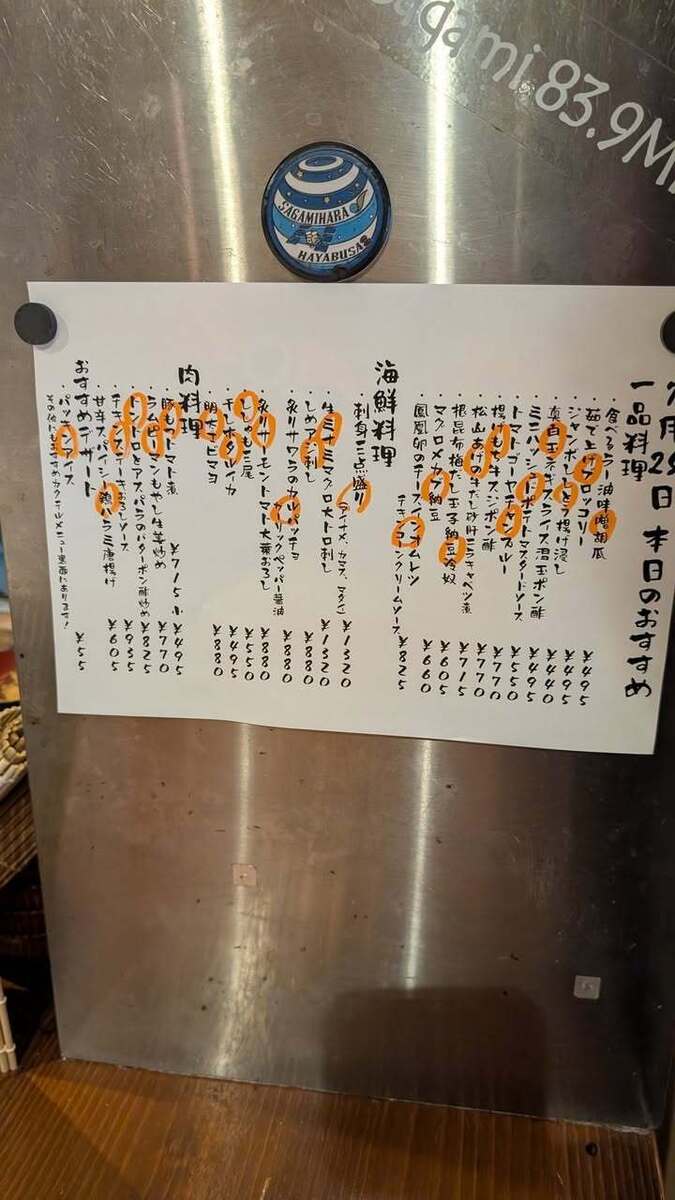 Sagami 83.9M
SAGAMIHARA
HAYABUSA2
月2 日 本日のおすすめ
一品料理
・食べるラー油味噌胡瓜 ¥495
・茹で上げブロッコリー ¥495
・ジャンボしし とう揚げ浸し ¥440
・真白玉ネギスライス温玉ポン酢 ¥495
・ミニハッシュポテトマスタードソース ¥550
・トマトゴーヤチャンプルー ¥770
・揚げもち牛スジポン酢 ¥770
・松山あげ牛だし砂肝ニラキャベツ煮 ¥715
・根昆布梅だし玉子納豆冷奴 ¥605
・マグロメカブ納豆 ¥660
・鳳凰卵のチーズインオムレツ
チキンコーンクリームソース ¥825
海鮮料理
・刺身三点盛り(アイナメ、カマス、マダイ) ¥1320
・生ミナミマグロ大トロ刺し ¥1320
・しめ 刺し ¥880
・炙りサワラのカルパッチョ
ガーリックペッパー醤油 ¥880
・炙りサーモントマト大葉おろし ¥880
・ししゃも三尾 ¥550
・干しホタルイカ ¥495
・明太子 マヨ ¥880
肉料理
・豚もつトマト煮 ¥715 小¥495
・ラム タンもやし生姜炒め ¥770
・トントロとアスパラのバターポン酢炒め ¥825
・チキンステーキおろしソース ¥935
・甘辛スパイシー鶏ハラミ唐揚げ ¥605
おすすめデザート
・バッカスアイス ¥55
その他にもおすすめカクテルメニュー裏面にあります!